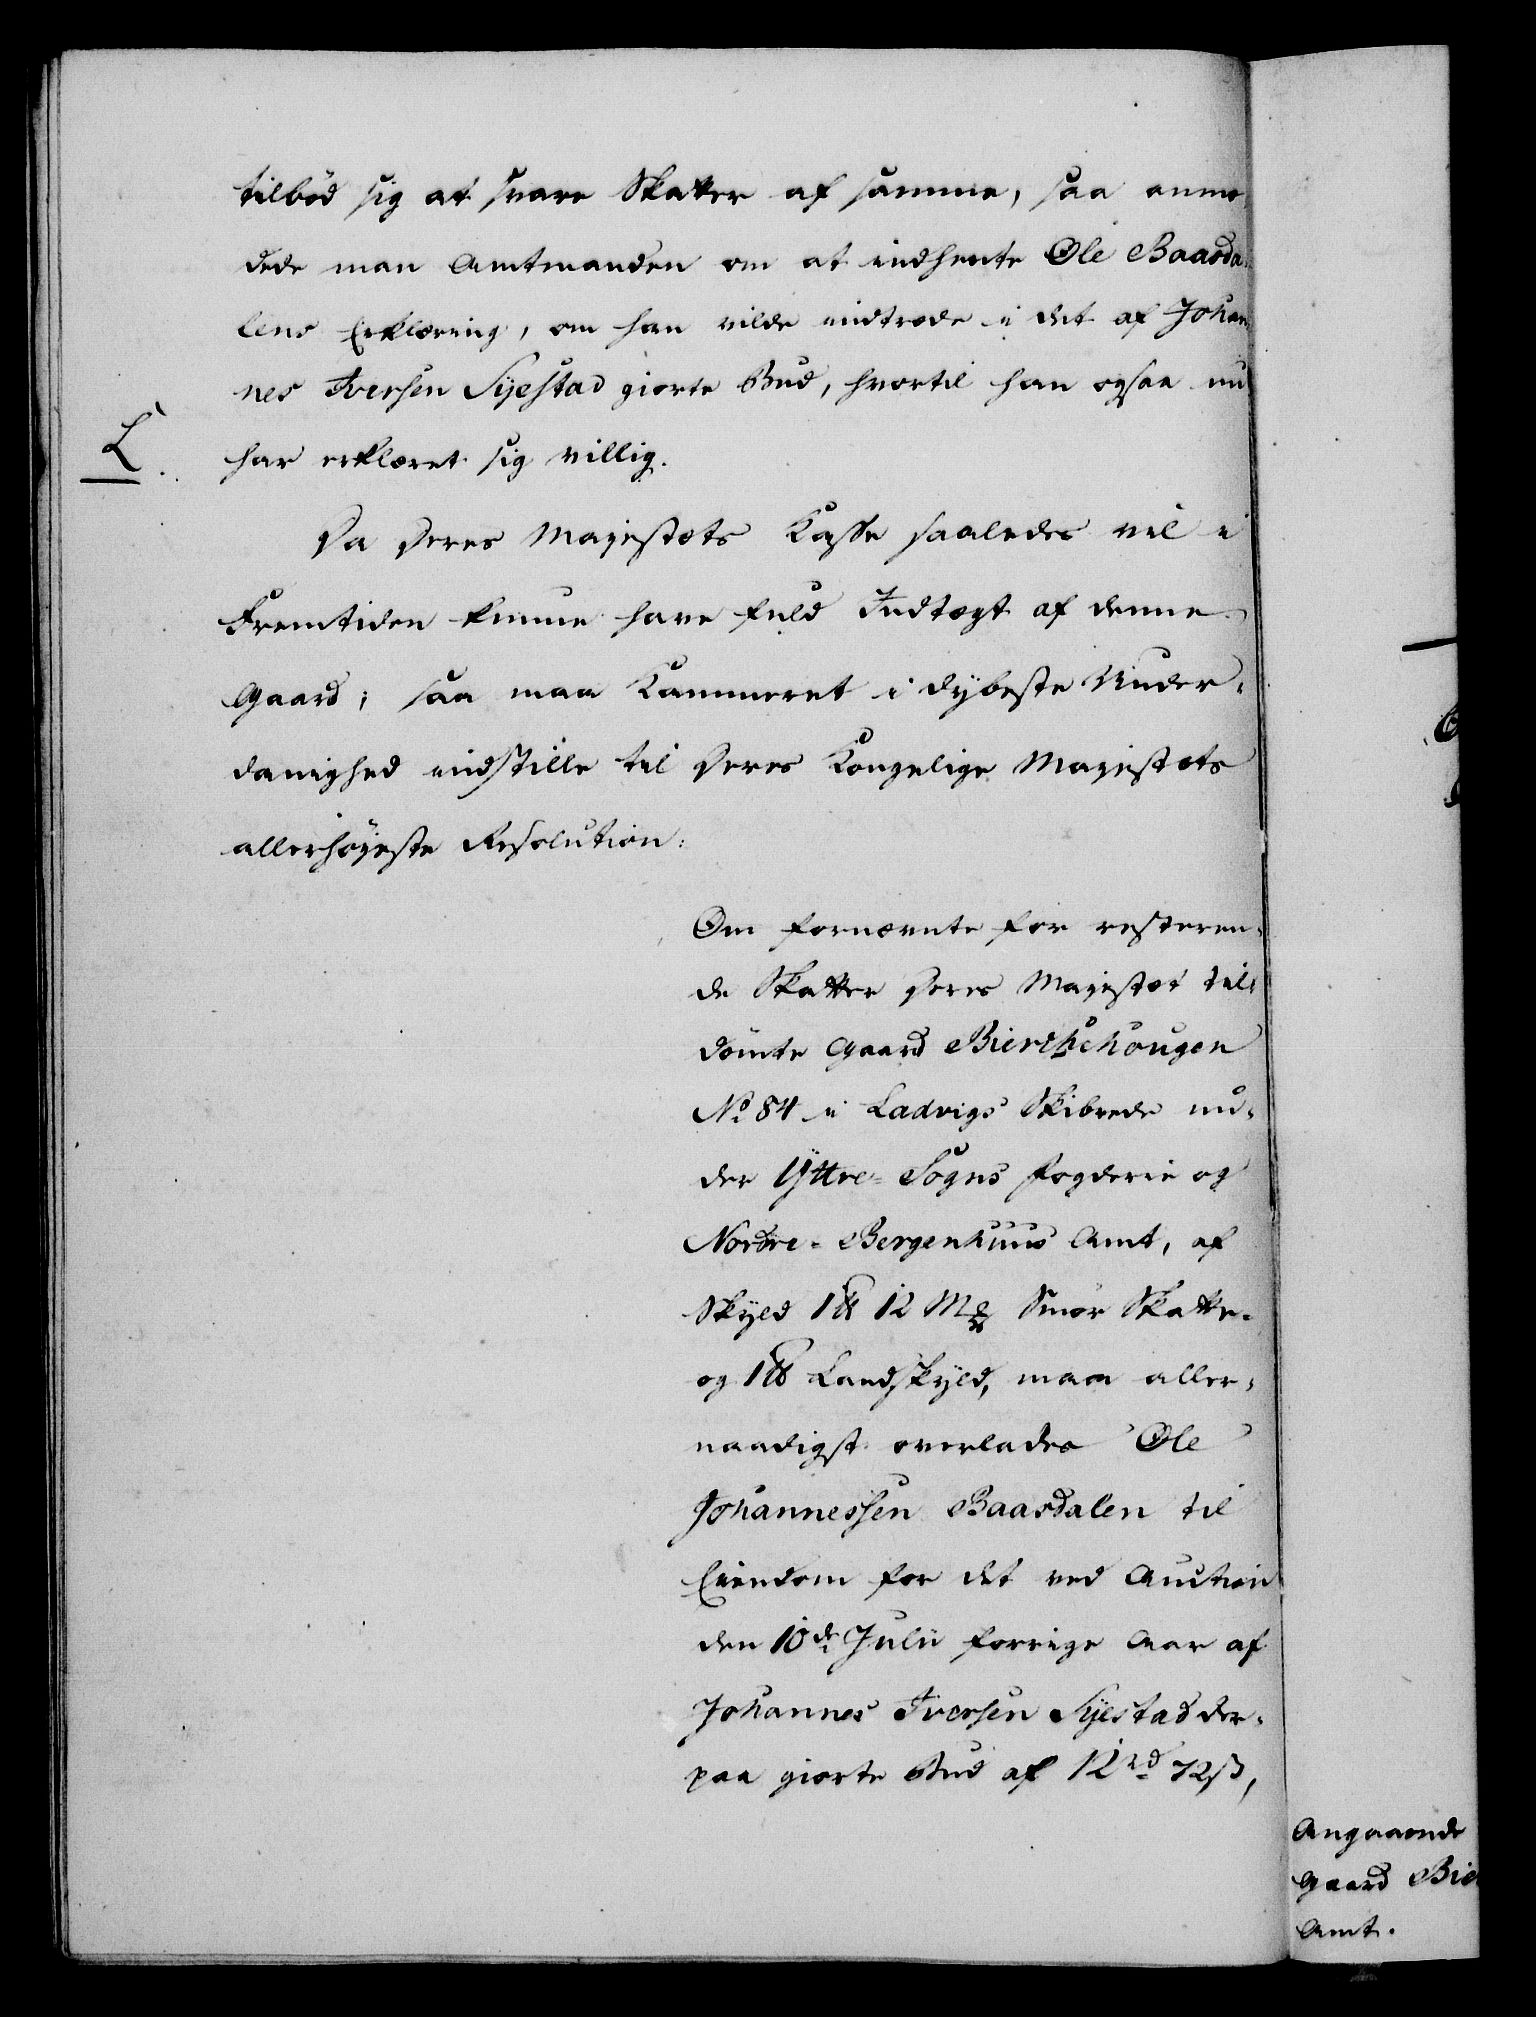 tilböd sig at svare Skatter af samme, saa anmo-
dede man Amtmanden om at indhente Ole Baarda-
lens Erklæring, om han vilde indtræde i det af Johan
nes Iversen Syestad giorte Bud, hvortil han ogsaa nu
L.
har erklæret sig villig.
Da Deres Majestæts Kasse saaledes vil i
Fremtiden kunne have fuld Indtægt af denne
Gaard; saa maa Kammeret i dybeste Under-
danighed indstille til Deres Kongelige Majestæts
allerhöjeste Resolution:
Om fornævnte for resteren-
de Skatter Deres Majestæt til-
dömte Gaard Bierchehougen
No 84 i Ladvigs Skibrede un-
der Yttre-Sogns Fogderie og
Nordre-Bergenhuus Amt, af
Skyld 1 12 Mk Smör Skatte-
og 1 Landskyld, maa aller-
naadigst overlades Ole
Johannessen Baardalen til
Eiendom for det ved Auction
den 10de Julii forrige Aar af
Johannes Iversen Syestad der-
paa giorte Bud af 12rd 72 ß,
Angaaende
Gaard Bie
Amt.